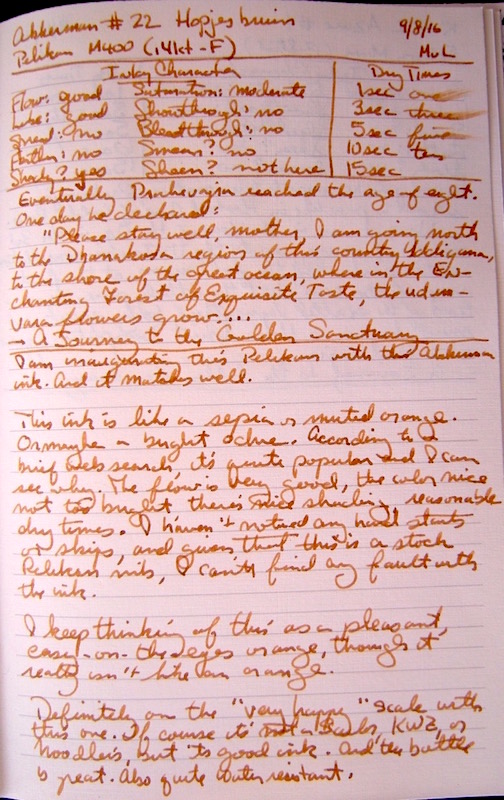 Akkerman # 22 Hopjesbruin 9/8/16
Pelikan M400 (14kt - F) MvL
Inky Character Dry Times
Flow: good Saturation: moderate 1sec one
Lube: good Showthrough: no 3sec three
Spread: no Bleedthrough: no 5sec five
Feather: no Smear? no 10sec ten
Shady? yes Sheen? not here 15sec
Eventually Prahevajra reached the age of eight.
One day he declared:
"Please stay well, mother, I am going north
to the Dhanakosa region of this country Uddiyana,
to the shore of the great ocean, where in the En-
chanting Forest of Exquisite Taste, the udum-
vara flowers grow....
- A Journey to the Golden Sanctuary
I am inaugurating this Pelikan with this Akkerman
ink. And it matches well.
This ink is like a sepia or muted orange.
Or maybe a bright ochre. According to a
brief web search, it's quite popular and I can
see why. The flow is very good, the color nice
not too bright, there's nice shading, reasonable
dry times. I haven't noticed any hard starts
or skips, and given that this is a stock
Pelikan nib, I can't find any fault with
the ink.
I keep thinking of this as a pleasant,
easy-on-the-eyes orange, though it
really isn't like an orange.
Definitely on the "very happy" scale with
this one. Of course it's not a Barlo, KWZ, or
Noodler's, but 'tis good ink. And the bottle
is great. Also quite water resistant.